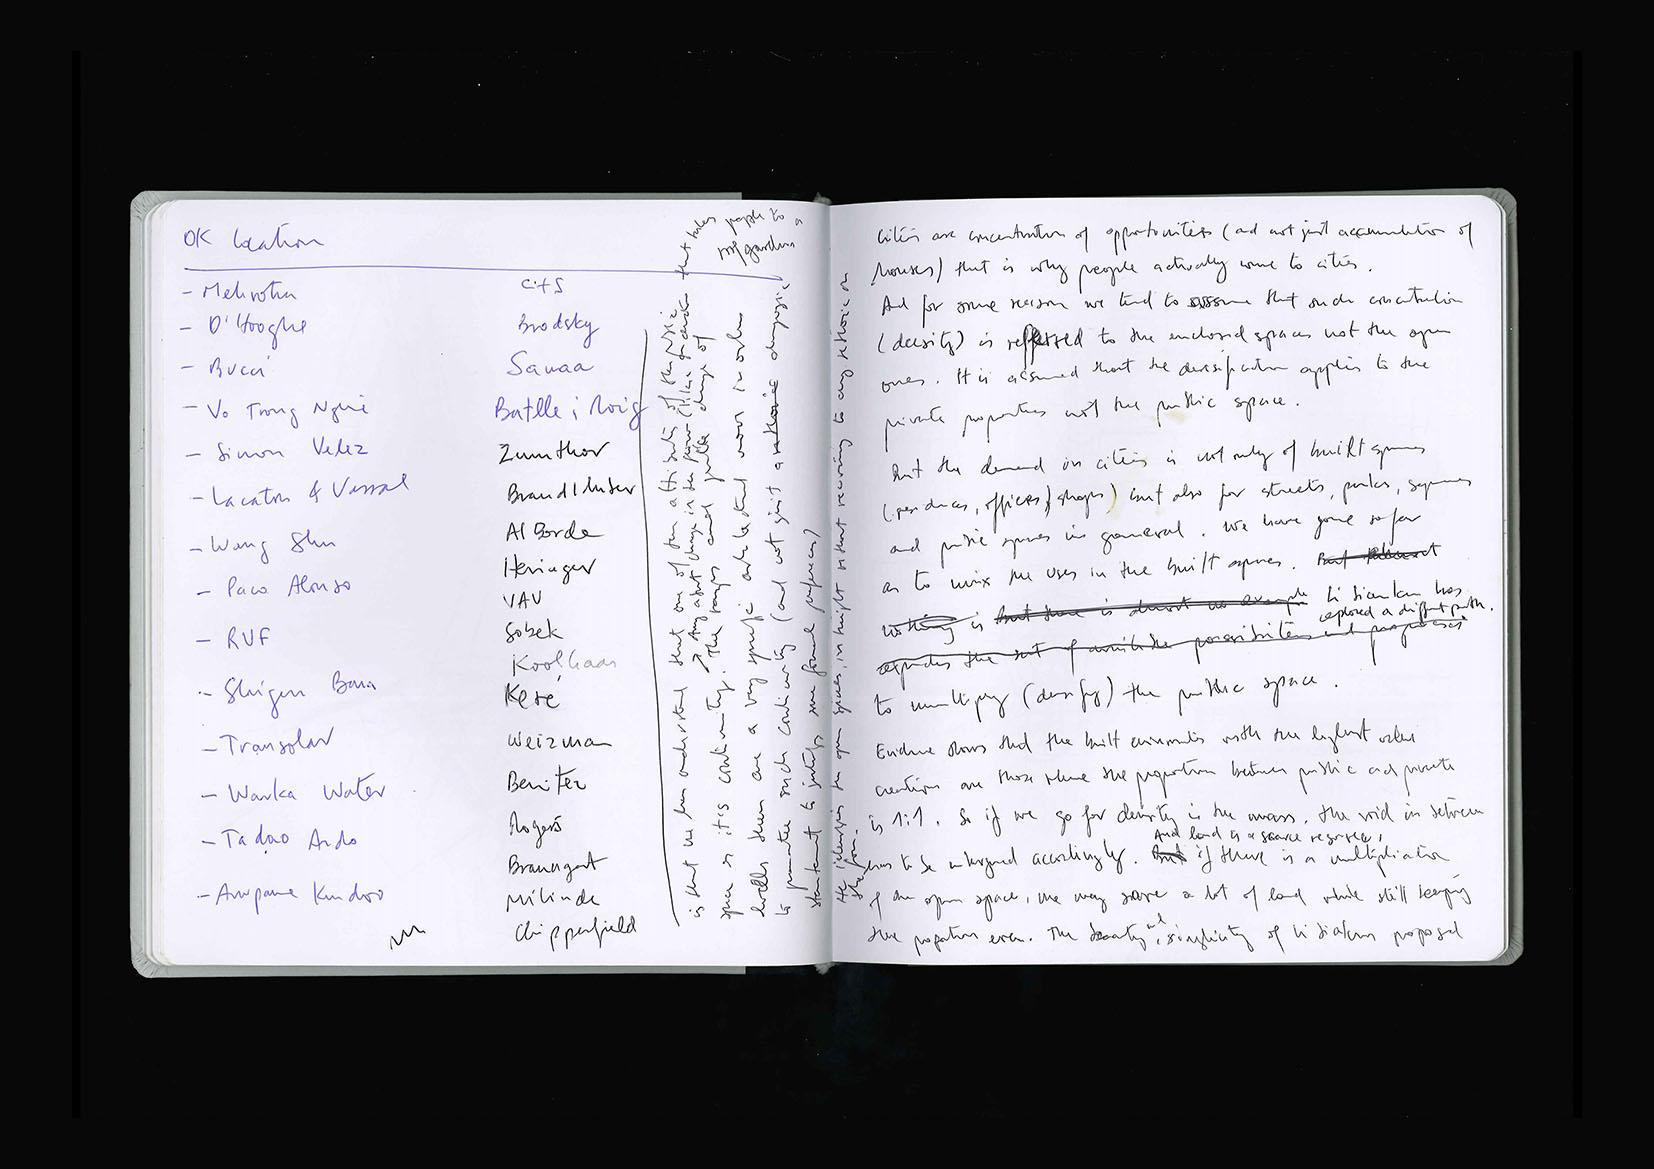 OK location
- Mehrotra
- D'Hooghe
- Bucci
- Vo Trong Nghia
- Simon Velez
- Lacaton & Vassal
- Wang Shu
- Paco Alonso
- RUF
- Shigeru Ban
- Transsolar
- Warka Water
- Tadao Ando
- Anupama Kundoo
C+S
Brodsky
Sanaa
Batlle i Roig
Zumthor
Brandlhuber
Al Borde
Heringer
VAV
Sobek
Koolhaas
Keré
Weizman
Benitez
Rogers
Braungart
Milinda
Chipperfield
that takes people to a
my gardens
is that we have understood that one of the attributes of the public
→ Any abrupt change in the
space is its continuity. The ramps and
levels there are a very specific architectural move in order
to guarantee such continuity (and not just a rhetoric
statement to justify some formal preferences)
spaces, in height is that recurring to any rhetoric or
cities are concentration of opportunities (and not just accumulation of
houses) that is why people actually come to cities.
And for some reason we tend to assume that such concentration
(density) is reffered to the enclosed spaces not the open
ones. It is assumed that the densification applies to the
private properties not the public space.
But the demand in cities is not only of built spaces
(residences, offices, shops) but also for streets, parks, squares
and public spaces in general. We have gone so far
as to mix the uses in the built spaces. But almost
nothing is but there is almost no example Li Xiaodong has
explored a different path.
expands the set of available possibilities and
to multiply (densify) the public space.
Evidence shows that the built environments with the highest value
creation are those where the proportion between public and private
is 1:1. So if we go for density in the mass, the void in between
And land is a scarce resource,
has to be enlarged accordingly. But if there is a multiplication
of the open space, we may save a lot of land while still keeping
the proportion even. The beauty and simplicity of Li Xiaodong proposal